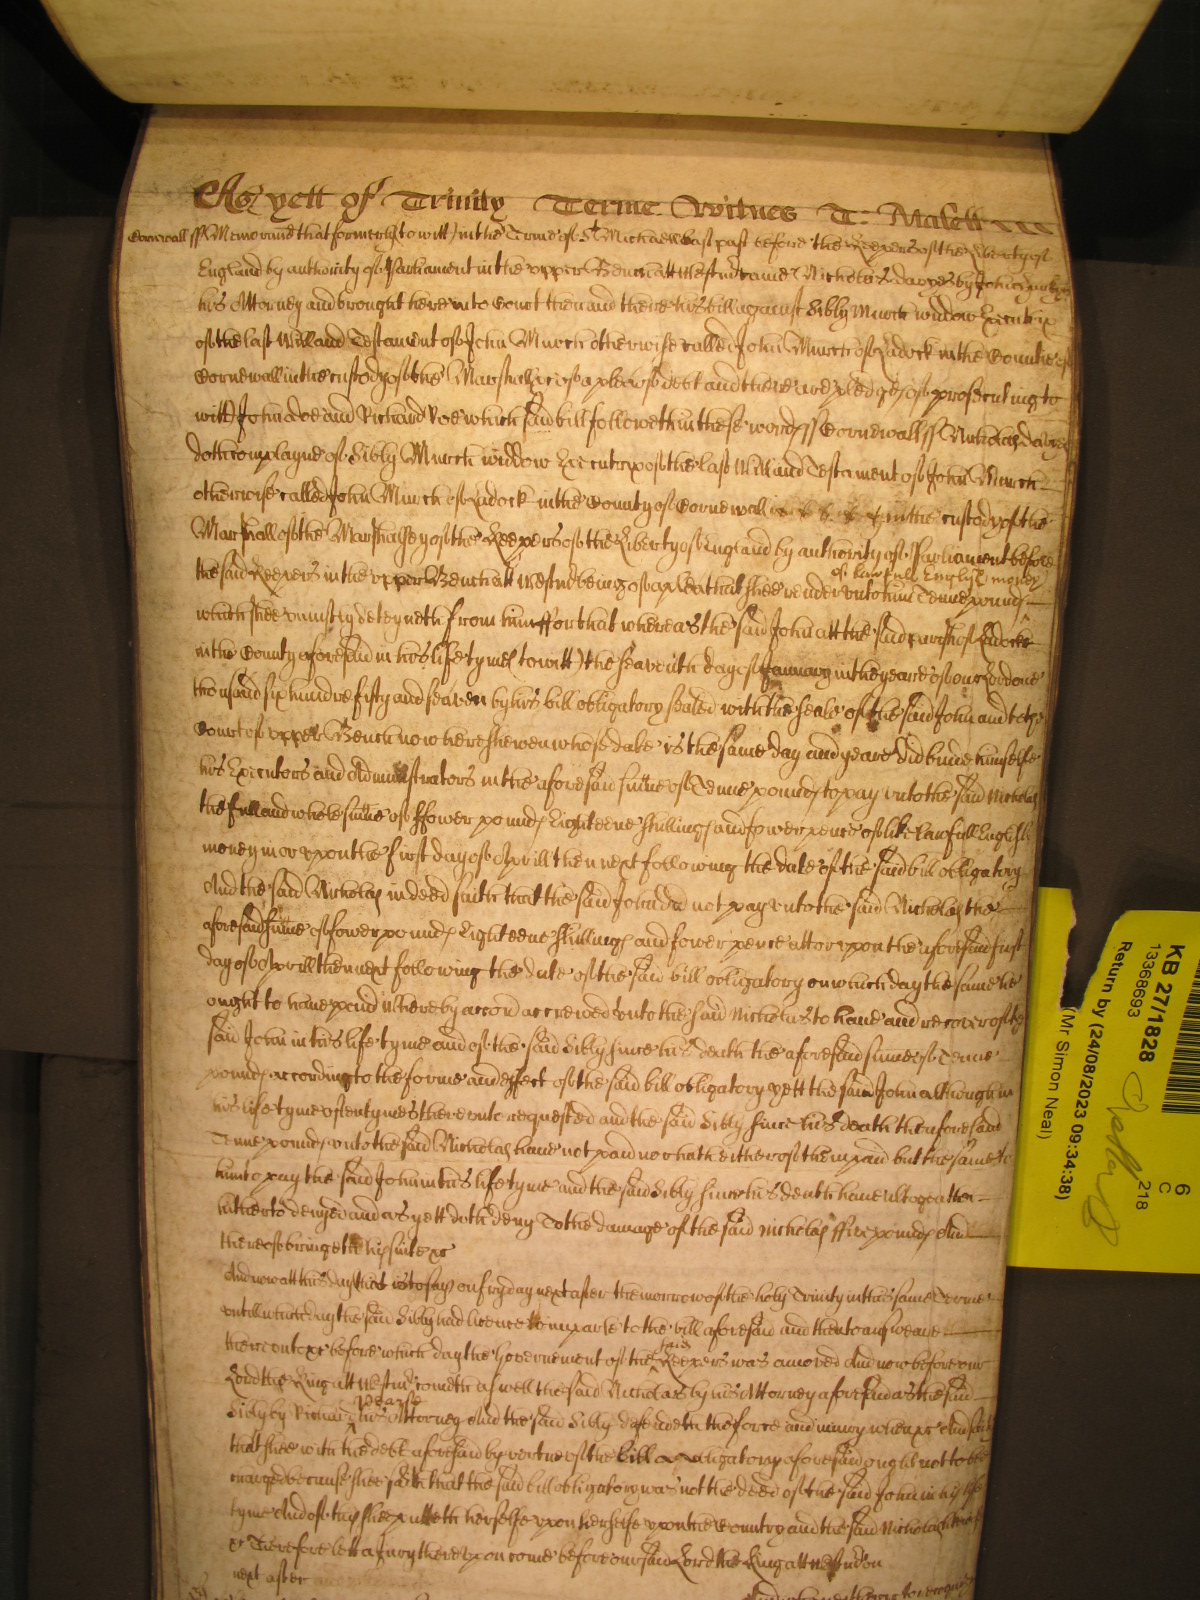 As yett of Trinity Terme Witnes T: Malett
Cornewall ss Memorand that formerly (to witt) in the Terme of St Michaell last past before the Keepers of the Liberty of
England by authority of Parliament in the upper Bench att Westmr came Nicholas by John
his Attorney and brought here into Court then and there his bill against Sibly Murch widdow Executrix
of the last Will and Testament of John Murch otherwise called John Murch of Ladock in the Countie of
Cornewall in the custody of the Marshall &c of a plea of debt and there are pledges of prosecuting to
witt John Doe and Richard Roe which said bill followeth in these words ss Cornewall ss Nicholas
doth complayne of Sibly Murch widdow Executrix of the last Will and Testament of John Murch
otherwise called John Murch of Ladock in the County of Cornewall in the custody of the
Marshall of the Marshalsey of the Keepers of the Liberty of England by authority of Parliament before
the said Keepers in the upper Bench att Westmr being of a plea that shee render unto him Tenne pounds
of lawfull English money
which shee uniustly deteyneth from him ffor that whereas the said John att the said parish of Ladock
in the County aforesaid in his life tyme (to witt) the seaventh day of January in the yeare of our Lord one
thousand six hundred fifty and seaven by his bill obligatory sealed with the seale of the said John and to the
Court of upper Bench now here shewen whose date is the same day and yeare did binde himselfe
his Executors and Administrators in the aforesaid summe of Tenne pounds to pay unto the said Nicholas
the full and whole summe of ffower pounds Eighteene shillings and fower pence of like lawfull English
money in or upon the first day of Aprill then next following the date of the said bill obligatory
And the said Nicholas in deed saith that the said John did not pay unto the said Nicholas the
aforesaid summe of fower pounds Eighteene shillings and fower pence att or upon the aforesaid first
day of Aprill then next following the date of the said bill obligatory on which day the same he
ought to have payd whereby accon accrewed unto the said Nicholas to have and recover of the
said John in his life tyme and of the said Sibly since his death the aforesaid summe of Tenne
pounds according to the forme and effect of the said bill obligatory yett the said John although in
his life tyme oftentymes thereunto requested and the said Sibly since his death the aforesaid
Tenne pounds unto the said Nicholas have not paid nor hath either of them paid but the same to
him to pay the said John in his life tyme and the said Sibly since his death have altogeather
hitherto denyed and as yett doth deny To the damage of the said Nicholas ffive pounds And
thereof bringeth his suite &c
And now att this day that is to say on fryday next after the morrow of the holy Trinity in this same Terme
untill which day the said Sibly had licence to imparle to the bill aforesaid and then to answeare
thereunto &c before which day the Government of the said Keepers was amoved And now before our
Lord the King att Westmr cometh as well the said Nicholas by his Attorney aforesaid as the said
Sibly by Richard Pearse his Attorney And the said Sibly defendeth the force and iniury when &c And saith
that shee with the debt aforesaid by vertue of the bill obligatory aforesaid ought not to be
charged because shee saith that the said bill obligatory was not the deed of the said John in his life
tyme And of this shee putteth herselfe upon herselfe upon the Country and the said Nicholas
&c Therefore lett a Jury thereupon come before our said Lord the King att Westmr on
next after
KB 27/1828
13368693
Return by (24/08/2023 09:34:38)
(Mr Simon Neal)
6
C
218